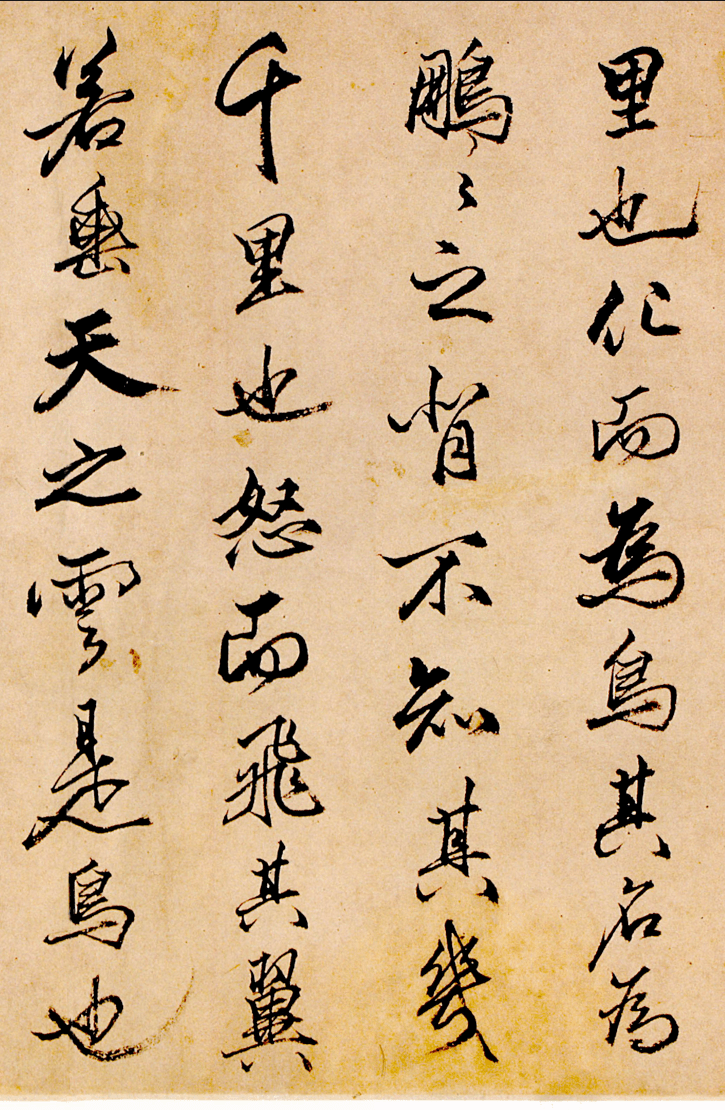 里也化而為鳥其名為
鵬〻之背不知其幾
千里也怒而飛其翼
若垂天之雲是鳥也